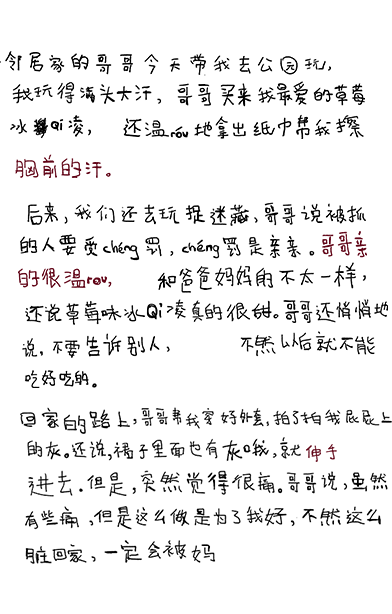 邻居家的哥哥今天带我去公园玩,
我玩得满头大汗,哥哥买来我最爱的草莓
冰Qi凌, 还温róu地拿出纸巾帮我擦
胸前的汗。
后来,我们还去玩捉迷藏,哥哥说被抓
的人要受chéng罚,chéng罚是亲亲。哥哥亲
的很温rou, 和爸爸妈妈的不太一样,
还说草莓味冰Qi凌真的很甜。哥哥还悄悄地
说,不要告诉别人, 不然以后就不能
吃好吃的。
回家的路上,哥哥帮我穿好外套,拍了拍我屁屁上
的灰。还说,裙子里面也有灰哦,就伸手
进去。但是,突然觉得很痛。哥哥说,虽然
有些痛,但是这么做是为了我好,不然这么
脏回家,一定会被妈